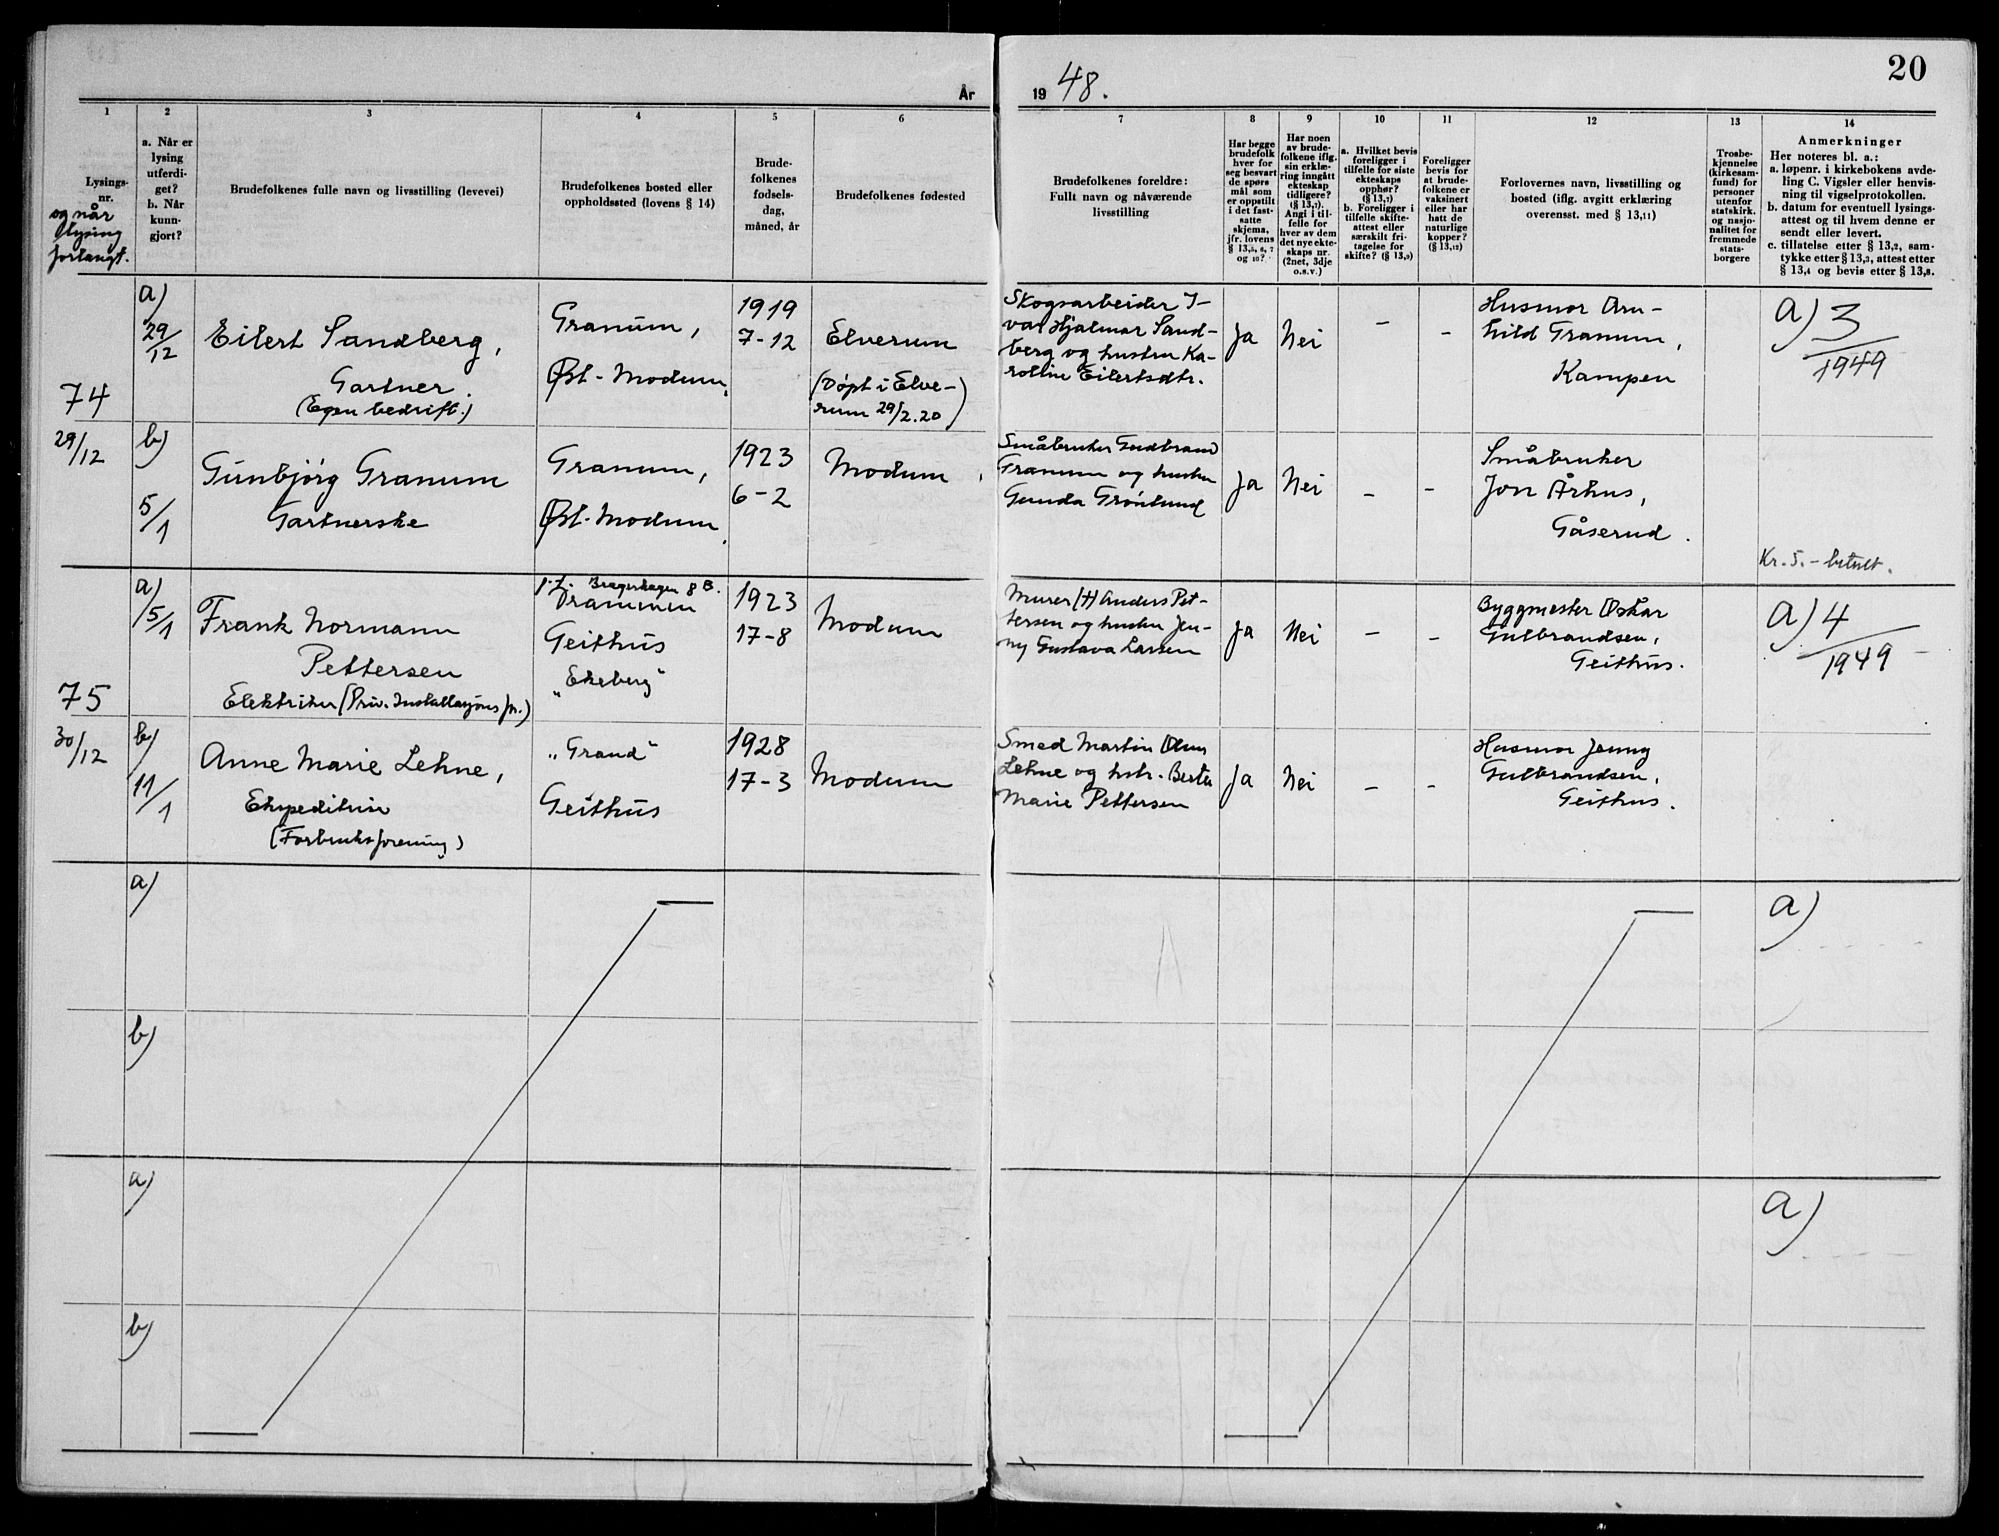 År
19 48.
20
1
2
3
4
5
6
7
8
9
10
11
12
13
14
Lysings-
nr.
og når
lysing
forlangt.
a. Når er
lysing
utferdi-
get?
b. Når
kunn-
gjort?
Brudefolkenes fulle navn og livsstilling (levevei)
Brudefolkenes bosted eller
oppholdssted (lovens § 14)
Brude-
folkenes
fødsels-
dag,
måned, år
Brudefolkenes fødested
Brudefolkenes foreldre:
Fullt navn og nåværende
livsstilling
Har begge
brudefolk
hver for
seg besvart
de spørs-
mål som
er oppstilt
i det fast-
satte
skjema,
jfr. lovens
§ 13,5, 6, 7
og 10?
Har noen
av brude-
folkene iflg.
sin erklæ-
ring inngått
ekteskap
tidligere?
(§ 13,7).
Angi i til-
felle for
hver av dem
det nye ekte-
skaps nr.
(2net, 3dje
o.s.v.)
a. Hvilket bevis
foreligger i
tilfelle for siste
ekteskaps
opphør?
(§ 13,7)
b. Foreligger i
tilfelle skifte-
attest eller
særskilt fri-
tagelse for
skifte? (§ 13,9)
Foreligger
bevis for
at brude-
folkene er
vaksinert
eller har
hatt de
naturlige
kopper?
(§ 13,12)
Forlovernes navn, livsstilling og
bosted (iflg. avgitt erklæring
overensst. med § 13,11)
Trosbe-
kjennelse
(kirkesam-
fund) for
personer
utenfor
statskirk.
og nasjo-
nalitet for
fremmede
stats-
borgere
Anmerkninger
Her noteres bl. a.:
a. løpenr. i kirkebokens avde-
ling C. Vigsler eller henvis-
ning til vigselprotokollen.
b. datum for eventuell lysings-
attest og til hvem denne er
sendt eller levert.
c. tillatelse etter § 13,2, sam-
tykke etter § 13,3, attest etter
§ 13,4 og bevis etter § 13,8.
74
29/12
a)
29/12
Eilert Sandberg,
Gartner.
(Egen bedrift.)
Granum,
Øst-Modum.
1919
7-12
Elverum
(Døpt i Elve-
rum 29/2.20)
Skogsarbeider I-
var Hjalmar Sand-
berg og hustru Ka-
roline Eilertsdtr.
Ja
Nei
-
-
Husmor Arn-
hild Granum,
Kampen
a) 3
1949
b)
5/1
Gunbjörg Granum
Gartnerske
Granum,
Øst-Modum.
1923
6-2
Modum
Småbruker Gudbrand
Granum og hustru
Gunda Grönlund
Ja
Nei
-
-
Småbruker
Jon Århus,
Gåserud.
Kr. 5.- betalt.
75
30/12
a)
5/1
Frank Normann
Pettersen
Elektriker (Priv. Installasjons fm.)
p.t. Bragerhagen 8 B.
Drammen
Geithus
"Ekeberg"
1923
17-8
Modum
Murer (†) Anders Pet-
tersen og hustru Jen-
ny Gustava Larsen
Ja
Nei
-
-
Byggmester Oskar
Gulbrandsen,
Geithus.
a) 4
1949
b)
11/1
Anne Marie Lehne,
Ekspeditrise
(Forbruksforening)
"Grand"
Geithus
1928
17-3
Modum
Smed Martin
Lehne og hstr. Berta
Marie Pettersen
Ja
Nei
-
-
Husmor Jenny
Gulbrandsen,
Geithus.
a)
a)
b)
a)
a)
b)